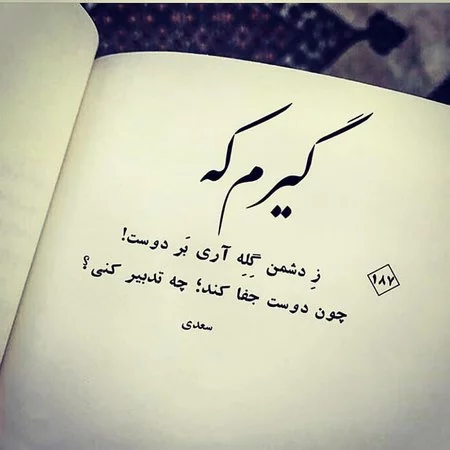 گیرم که
زِ دشمن گِلِه آری بَر دوست!
چون دوست جفا کند؛ چه تدبیر کنی؟
سعدی
۱۸۷